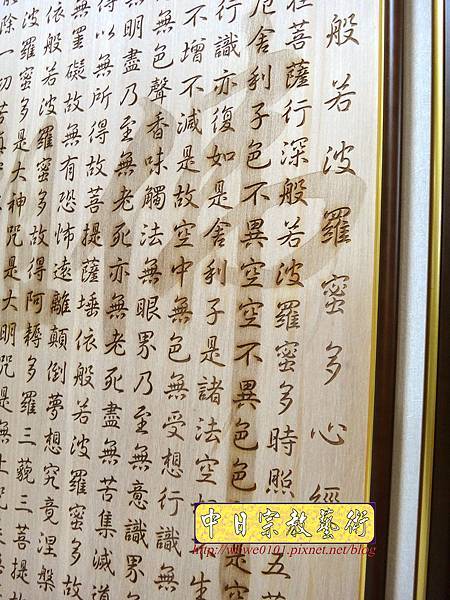 般若波羅蜜多心經
在菩薩行深般若波羅蜜多時照五蘊
厄舍利子色不異空空不異色色是空
行識亦復如是舍利子是諸法空相
不增不減是故空中無色無受想行識無
無色聲香味觸法無眼界乃至無意識界
無明盡乃至無老死亦無老死盡無苦集滅道
得以無所得故菩提薩埵依般若波羅蜜多故
罣礙故無有恐怖遠離顛倒夢想究竟涅槃
依般若波羅蜜多故得阿耨多羅三藐三菩提故
波羅蜜多是大神咒是大明咒是無上咒
除一切苦真
中日宗教藝術
http://wowe0101.pixnet.net/blog